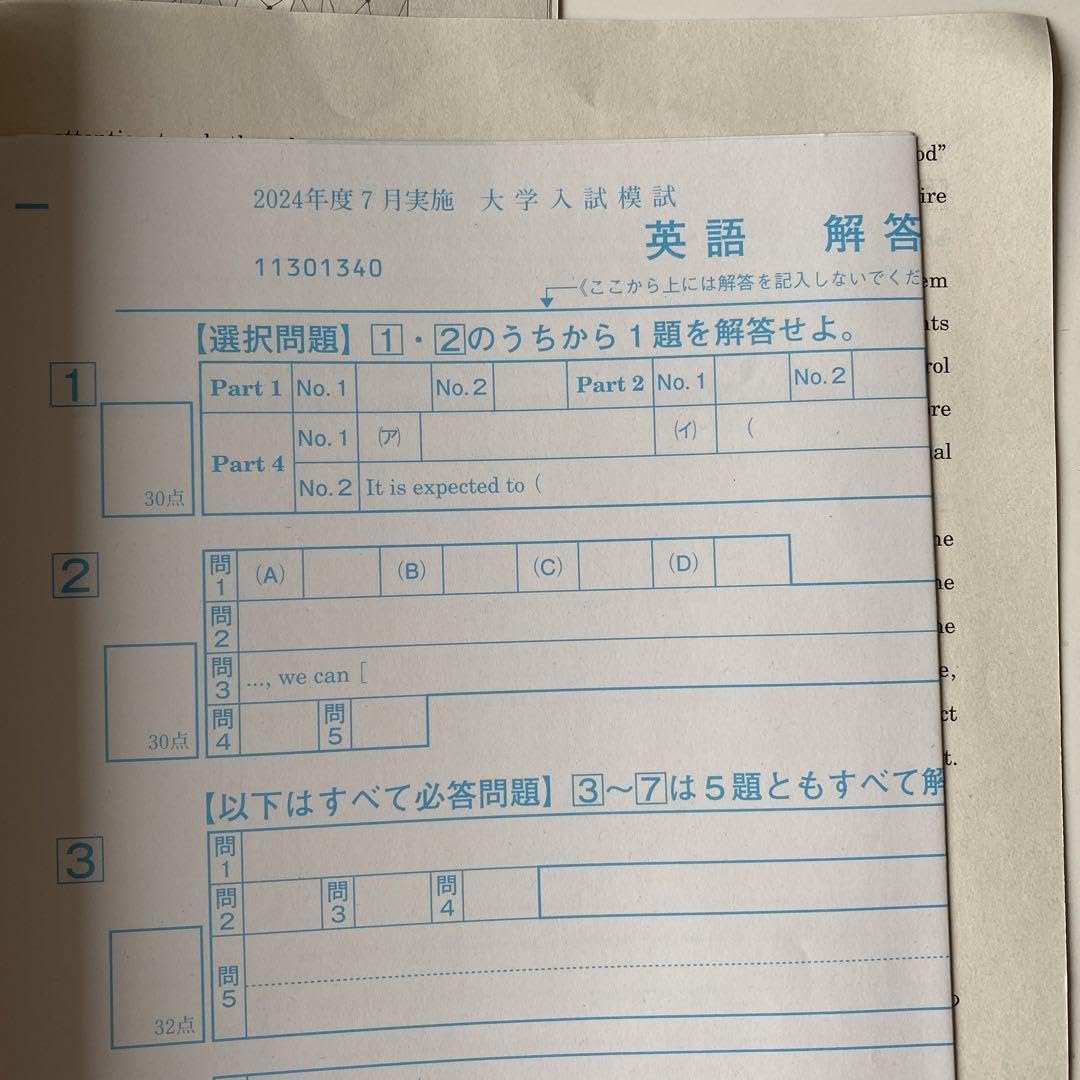 2024年度7月実施 大学入試模試
英語 解答
11301340
《ここから上には解答を記入しないでくだ
【選択問題】1・2のうちから1題を解答せよ。
1
Part 1 No. 1 No. 2 Part 2 No. 1 No. 2
Part 4 No. 1 (ア) (イ) (
No. 2 It is expected to (
30点
2
問1 (A) (B) (C) (D)
問2
問3 ..., we can [
問4 問5
30点
【以下はすべて必答問題】3～7は5題ともすべて解
3
問1
問2 問3 問4
問5
32点
od”
ire
em
nts
rol
re
al
ne
ne
ne
e,
ct
t.